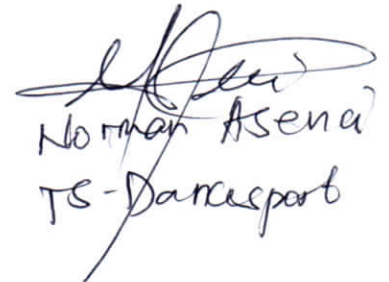 Norman Asena
TS-Dancesport